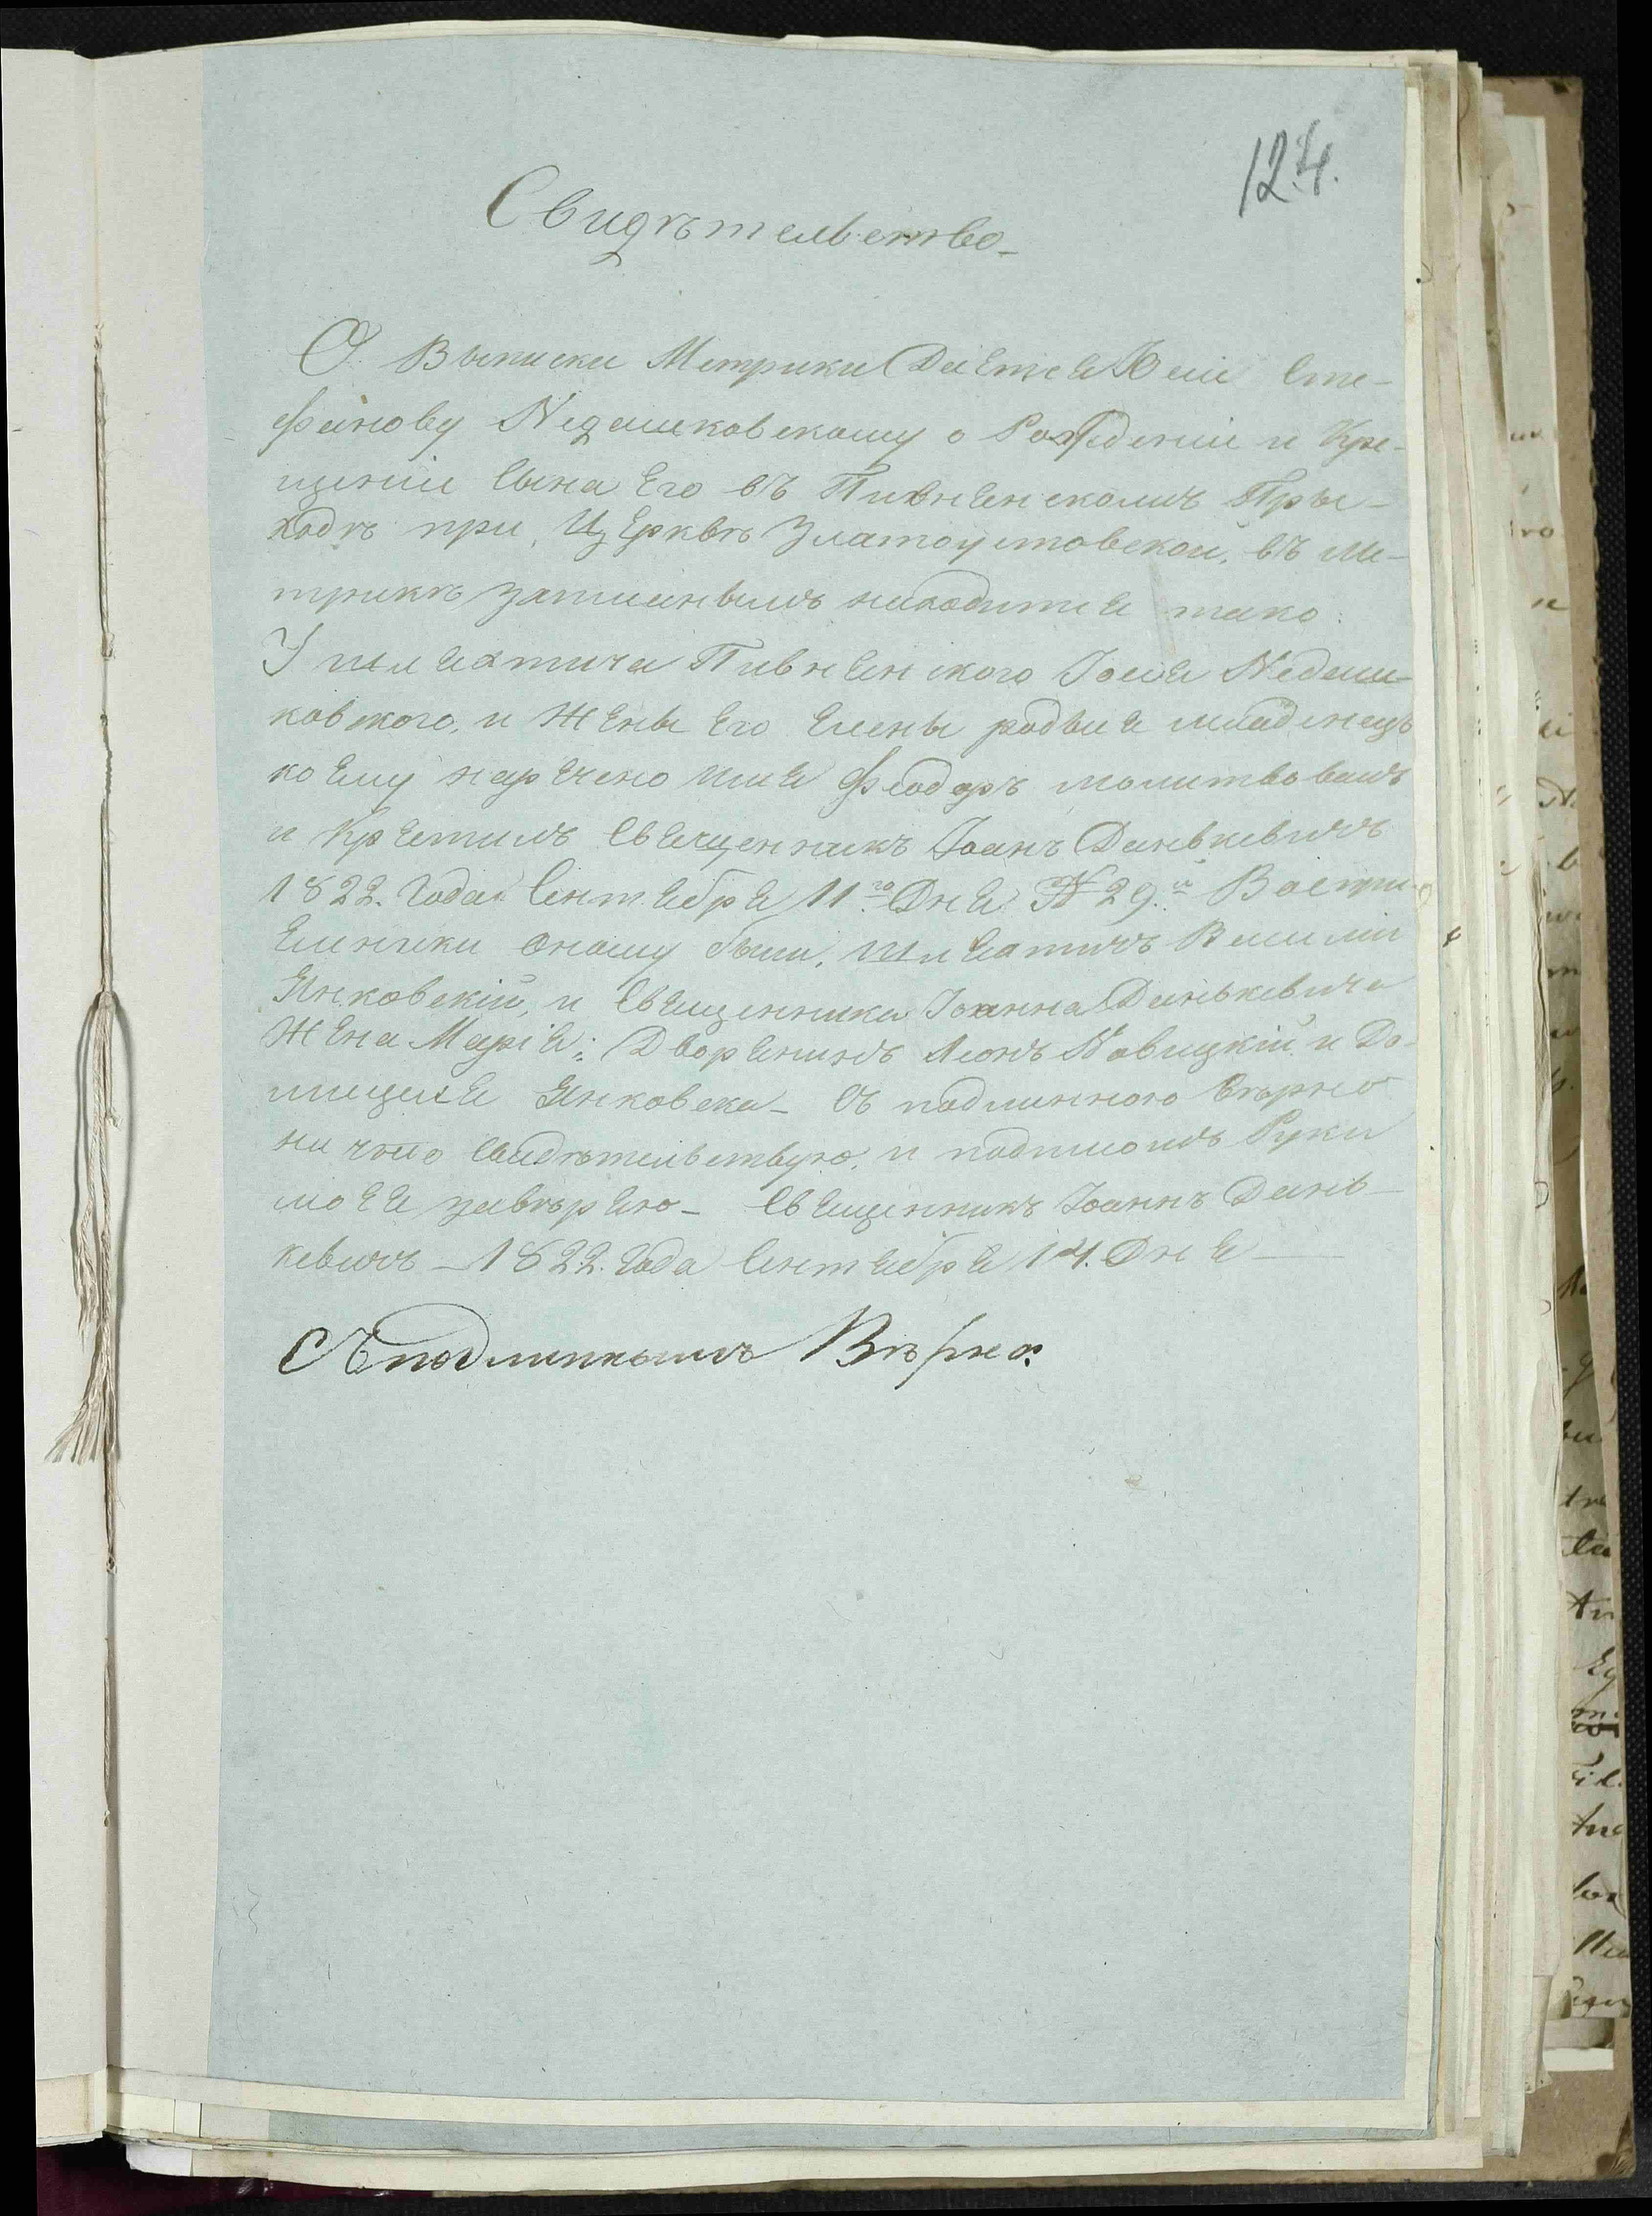 124.
Свидѣтельство
О Выписки Метрики Дается Юсiи Сте-
фанову Недашковскому о Рождении и Кре-
щении Сына Его въ Пивненскомъ При-
ходѣ при Церквѣ Златоустовской, въ Ме-
трикѣ записанымъ находится тако:
У шляхтича Пивненского Iосия Недаш-
ковского, и Жены Его Елены родися младенецъ
коему наречено имя Феодоръ молитвовалъ
и Крестилъ Священникъ Iоанъ Данькевичъ
1822. Года Сентября 11.го Дня № 29.й Воспри-
емники оному были, шляхтичъ Василiй
Янковскiй, и Священника Iоанна Данькевича
Жена Марiя; Дворянинъ Леонъ Новицкiй и До-
мицеля Янковска - Съ подлинного вѣрно
на чѣмъ Свидѣтельствую, и подписомъ Руки
моея завѣряю - Священникъ Iоаннъ Дань-
кевичъ - 1822. Года Сентября 14. Дня
Съ подлиннымъ Вѣрно: